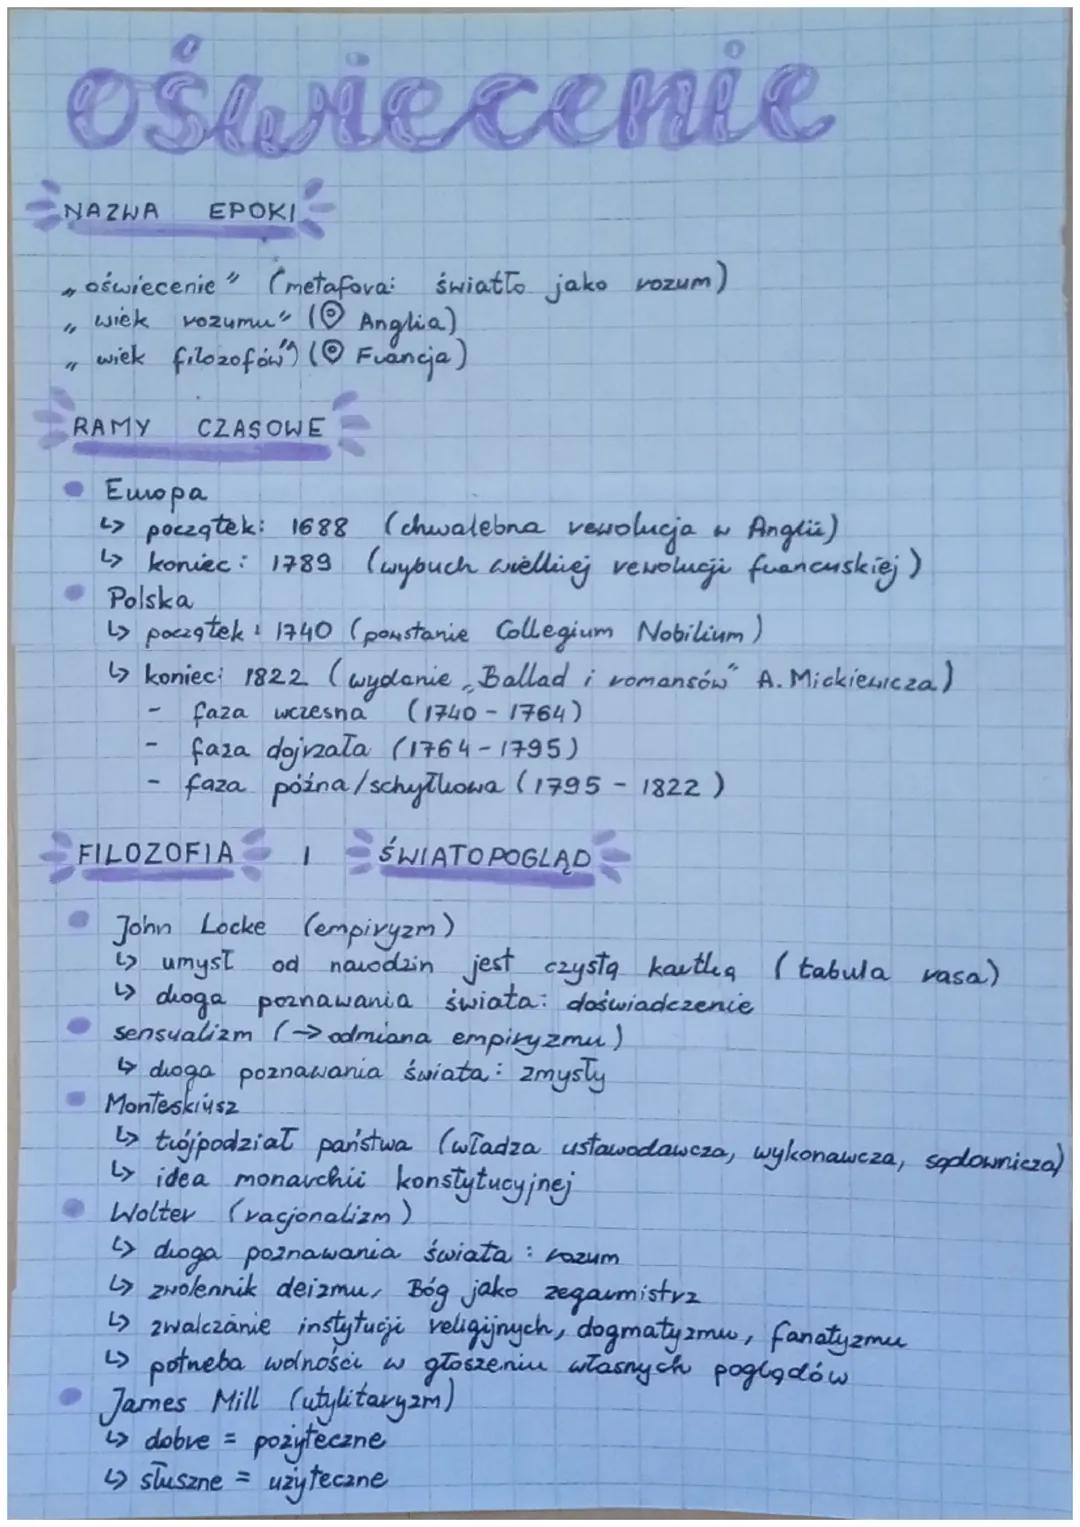 oświecenie
NAZWA EPOKI
„oświecenie" (metafora: światło jako rozum)
„wiek rozumu" (Anglia)
„wiek filozofów") (Francja)
RAMY CZASOWE
Europa
↳ początek: 1688 (chwalebna rewolucja w Anglii)
↳ koniec: 1789 (wybuch wielkiej rewolucji francuskiej)
Polska
↳ początek: 1740 (powstanie Collegium Nobilium)
↳ koniec: 1822 (wydanie „Ballad i romansów" A. Mickiewicza)
- faza wczesna (1740 - 1764)
- faza dojrzała (1764 - 1795)
- faza późna/schyłkowa (1795 - 1822)
FILOZOFIA I ŚWIATOPOGLĄD
John Locke (empiryzm)
↳ umysł od narodzin jest czystą kartką (tabula rasa)
↳ droga poznawania świata: doświadczenie
sensualizm (→ odmiana empiryzmu)
↳ droga poznawania świata: zmysły
Monteskiusz
↳ trójpodział państwa (władza ustawodawcza, wykonawcza, sądownicza)
↳ idea monarchii konstytucyjnej
Wolter (racjonalizm)
↳ droga poznawania świata: rozum
↳ zwolennik deizmu, Bóg jako zegarmistrz
↳ zwalczanie instytucji religijnych, dogmatyzmu, fanatyzmu
↳ potrzeba wolności w głoszeniu własnych poglądów
James Mill (utylitaryzm)
↳ dobre = pożyteczne
↳ słuszne = użyteczne